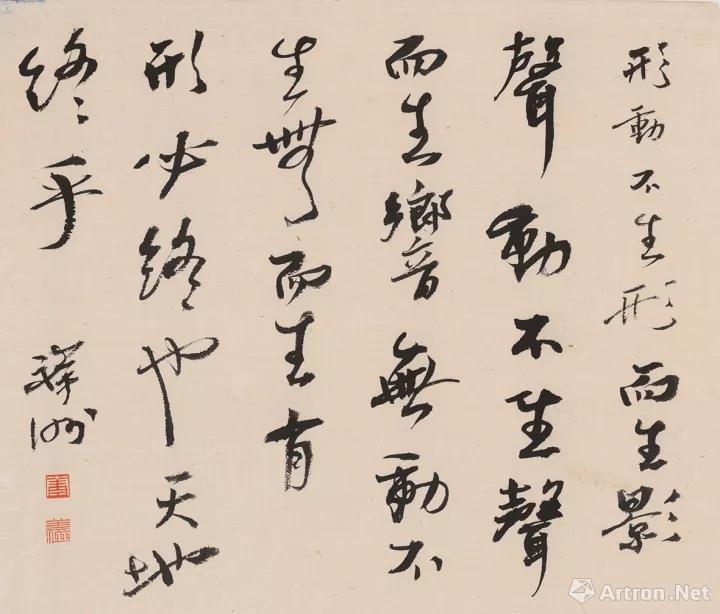 形動不生形而生影
聲動不生聲
而生響無動不
生無而生有
形必終也天地
終乎
Artron.Net